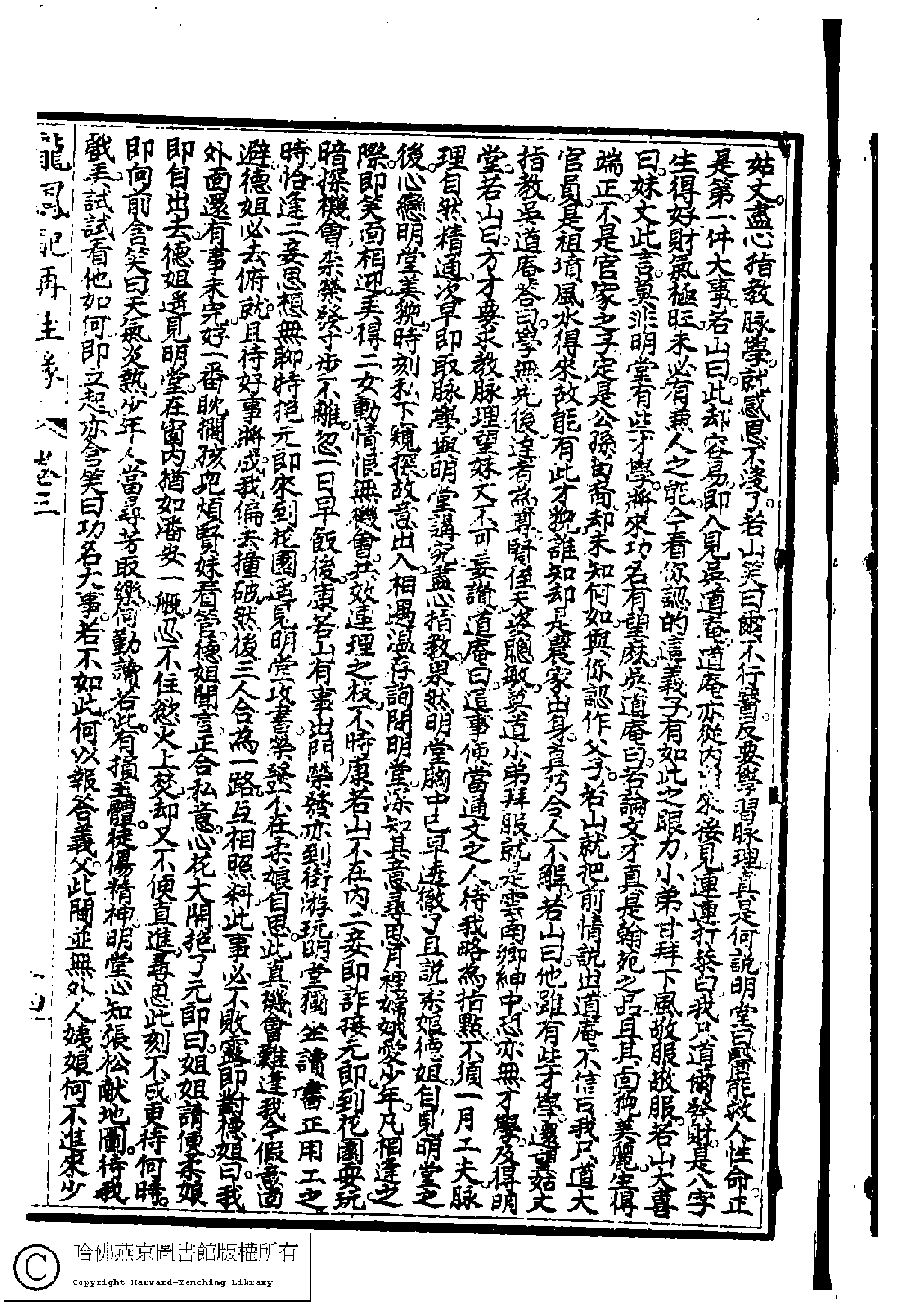 姑丈盡心指教脉學則感恩不淺了若山笑曰爾不行醫反要學習脉理真是何說明堂曰醫能救人性命正
是第一件大事若山曰此却容易即入見吳道庵道庵亦從內出來接見連連打恭曰我只道爾發財是八字
生得好財氣極旺未必有兼人之能今看你認的這義子有如此之眼力小弟甘拜下風敬服敬服若山大喜
曰妹丈此言莫非明堂有些才學將來功名有望麽吳道庵曰若論文才真是翰苑之品且其面貌美麗生得
端正不是官家之子定是公孫但不知何如與你認作父子若山就把前情說出道庵不信曰我只道大
官員是祖墳風水得來故能有此才貌誰知却是農家出身真乃令人不解若山曰他雖有些才學還望姑丈
指教吳道庵答曰學無先後達者為尊賢侄天姿聰敏莫道小弟拜服就是雲南鄉紳中恐亦無才學及得明
堂若山曰方才要求教脉理望妹丈不可妄讃道庵曰這事便當通文之人待我略為指點不須一月工夫脉
理自然精通次早即取脉學與明堂講究盡心指教果然明堂胸中已早透徹了且說柔娘德姐自見明堂之
後心戀明堂美貌時刻私下窺探故意出入相遇溫存詢問明堂深知其意尋思月裡嫦娥愛少年凡相逢之
際即笑面相迎弄得二女動情恨無機會共效連理之枝不時康若山不在內二妾即詐抱元郎到花園耍玩
暗探機會奈榮發寸步不離忽一日早飯後康若山有事出門榮發亦到街游玩明堂獨坐讀書正用工之
時恰逢二妾思想無聊時抱元郎來到花園遙見明堂攻書榮發不在柔娘自思此真機會難逢我今假意回
避德姐必去俯就且待好事將成我偏去撞破然後三人合為一路互相照料此事必不敗露即對德姐曰我
外面還有事未完好一番耽擱孩兒煩賢妹看管德姐聞言正合私意心花大開抱了元郎曰姐姐請便柔娘
即自出去德姐遙見明堂在窗內猶如潘安一般忍不住慾火上焚却又不便直進尋思此刻不成更待何時
即向前含笑曰天氣炎熱少年人當尋芳取樂何勤讀若此有損玉體徒傷精神明堂心知張松献地圖待我
戲弄試試看他如何即立起亦含笑曰功名大事若不如此何以報答義父此間並無外人姨娘何不進來少
龍鳳記再生緣 卷三 四
哈佛燕京圖書館版權所有
Copyright Harvard-Yenching Library